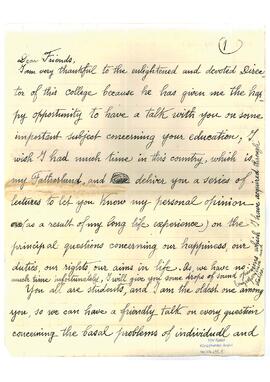 1
Dear Friends,
I am very thankful to the enlightened and devoted Direc
tor of this college because he has given me the hap
py opportunity to have a talk with you on some
important subject concerning your education. I
wish I had much time in this country, which is
my Fatherland, and deliver you a series of
lectures to let you know my personal opinion
(as a result of my long life experience) on the
principal questions concerning our happiness, our
duties, our rights our aims in life. As, we have no
much time unfortunately, I will give you some drops of sound
You all are students, and I am the oldest one among
you, so we can have a friendly talk on every question
concerning the basal problems of individual and
which I have acquired through